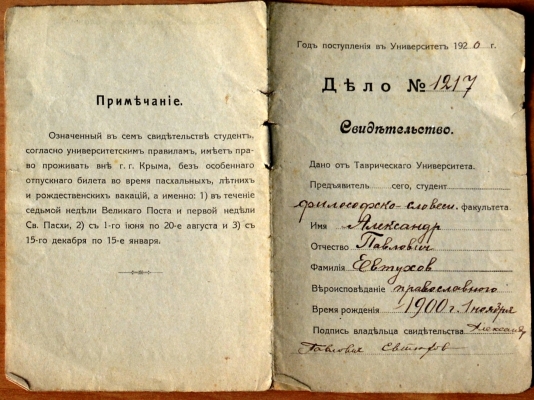 Примѣчаніе.
Означенный въ семъ свидѣтельствѣ студентъ,
согласно университетскимъ правиламъ, имѣетъ пра-
во проживать внѣ г. г. Крыма, безъ особеннаго
отпускнаго билета во время пасхальныхъ, лѣтнихъ
и рождественскихъ вакацій, а именно: 1) въ теченіе
седьмой недѣли Великаго Поста и первой недѣли
Св. Пасхи, 2) съ 1-го іюня по 20-е августа и 3) съ
15-го декабря по 15-е января.
Годъ поступленія въ Университетъ 1920 г.
Дѣло № 1217
Свидѣтельство.
Дано отъ Таврическаго Университета.
Предъявитель сего, студентъ
философско-словесн. факультета
Имя Александр
Отчество Павлович
Фамилія Евтухов
Вѣроисповѣданіе православного
Время рожденія 1900 г. 1 ноября
Подпись владѣльца свидѣтельства Александр
Павлович Евтухов